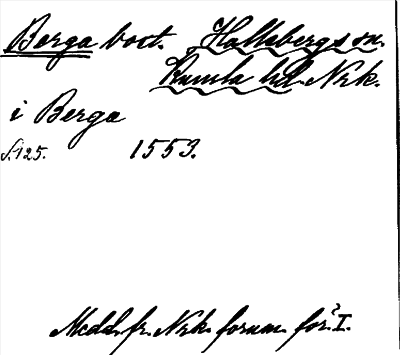 Berga bort. Hallsbergs sn.
Kumla hd Nrk.
i Berga
s. 125. 1553.
Medd. fr. Nrk. fornm. för. I.